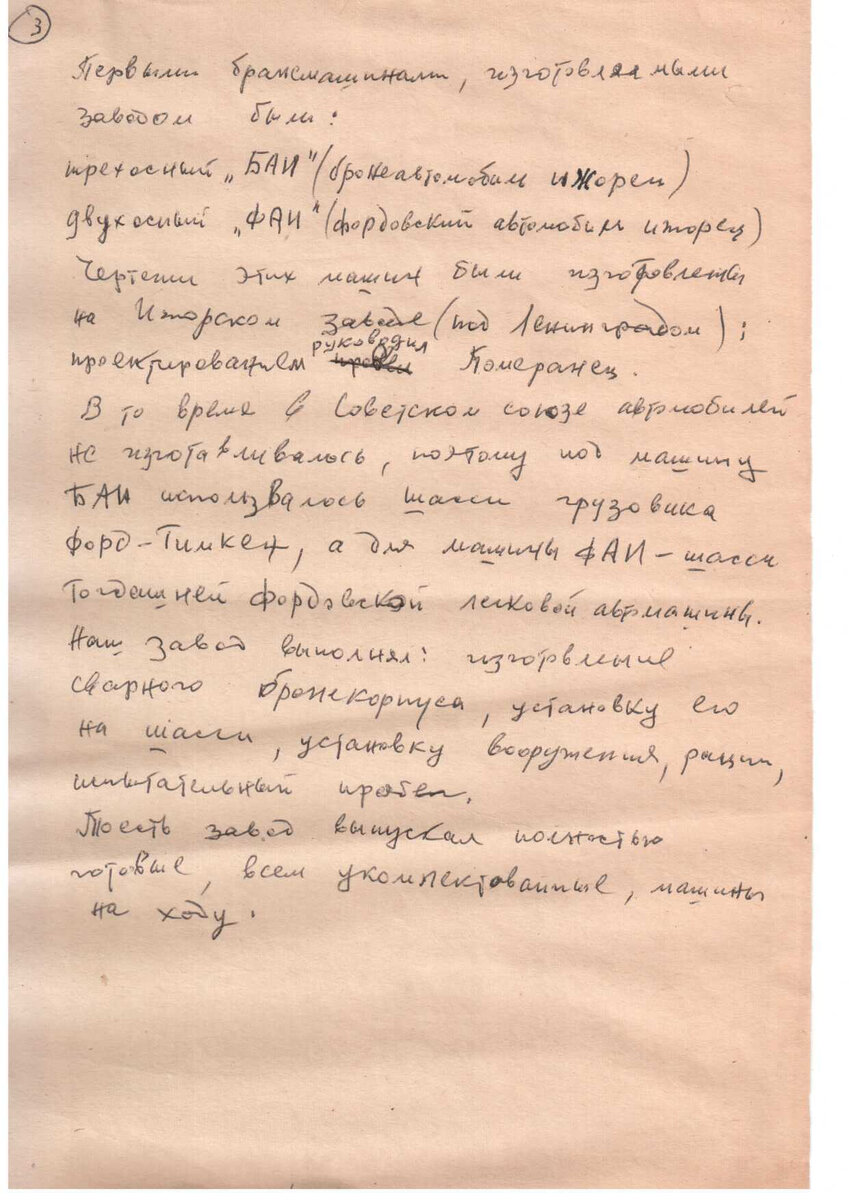 3
Первыми бронемашинами, изготовляемыми
заводом были:
трехосный „БАИ" (бронеавтомобиль ижорец)
двухосный „ФАИ" (фордовский автомобиль ижорец)
Чертежи этих машин были изготовлены
на Ижорском заводе (под Ленинградом);
руководил
проектированием Померанец.
В то время в Советском союзе автомобилей
не изготавливалось, поэтому под машину
БАИ использвалось шасси грузовика
Форд-Тимкен, а для машины ФАИ - шасси
тогдашней фордовской легковой автомашины.
Наш завод выполнял: изготовление
сварного бронекорпуса, установку его
на шасси, установку вооружения, рации,
испытательный пробег.
Тоесть завод выпускал полностью
готовые, всем укомплектованные, машины
на ходу.